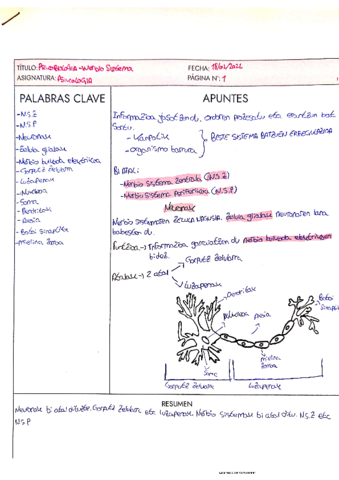 TÍTULO: Psikobiologia - Nerbio Sistema
FECHA: 18/01/2022
ASIGNATURA: Psicología
PÁGINA Nº: 1
PALABRAS CLAVE
APUNTES
-N.S.Z
-N.S.P
-Neuronak
-Zelula glialak
-Nerbio bulkada elektrikoa
-Gorputz Zelularra
-Luzapenak
-Nukleoa
-Soma
-Dendritak
-Botoi sinaptikoa
-Mielina zorroa
Informazioa jaso, ondoren prozesatu eta erantzun bat
sortu.
- Kanpotik
- organismo barrura
BESTE SISTEMA BATZUEN ERREGULAZIOA
BI ATAL:
- Nerbio Sistema Zentrala (N.S.Z)
- Nerbio Sistema Periferikoa (N.S.P)
Neuronak
Nerbio Sistemaren ZELULA NAGUSIA. Zelula glialak neuronaren lana
babesten du.
Funtzioa → Informazioa garraiatzen du nerbio bulkada elektrikoen
bidez
Atalak → 2 atal
Gorputz Zelularra
Luzapenak
Dendritak
Botoi
nukleoa
mielina
zorroa
Soma
Gorputz Zelularra
Luzapenak
RESUMEN
Neuronak bi atal dituzte. Gorputz Zelularra eta luzapenak. Nerbio Sistemak bi atal ditu. N.S.Z eta
N.S.P